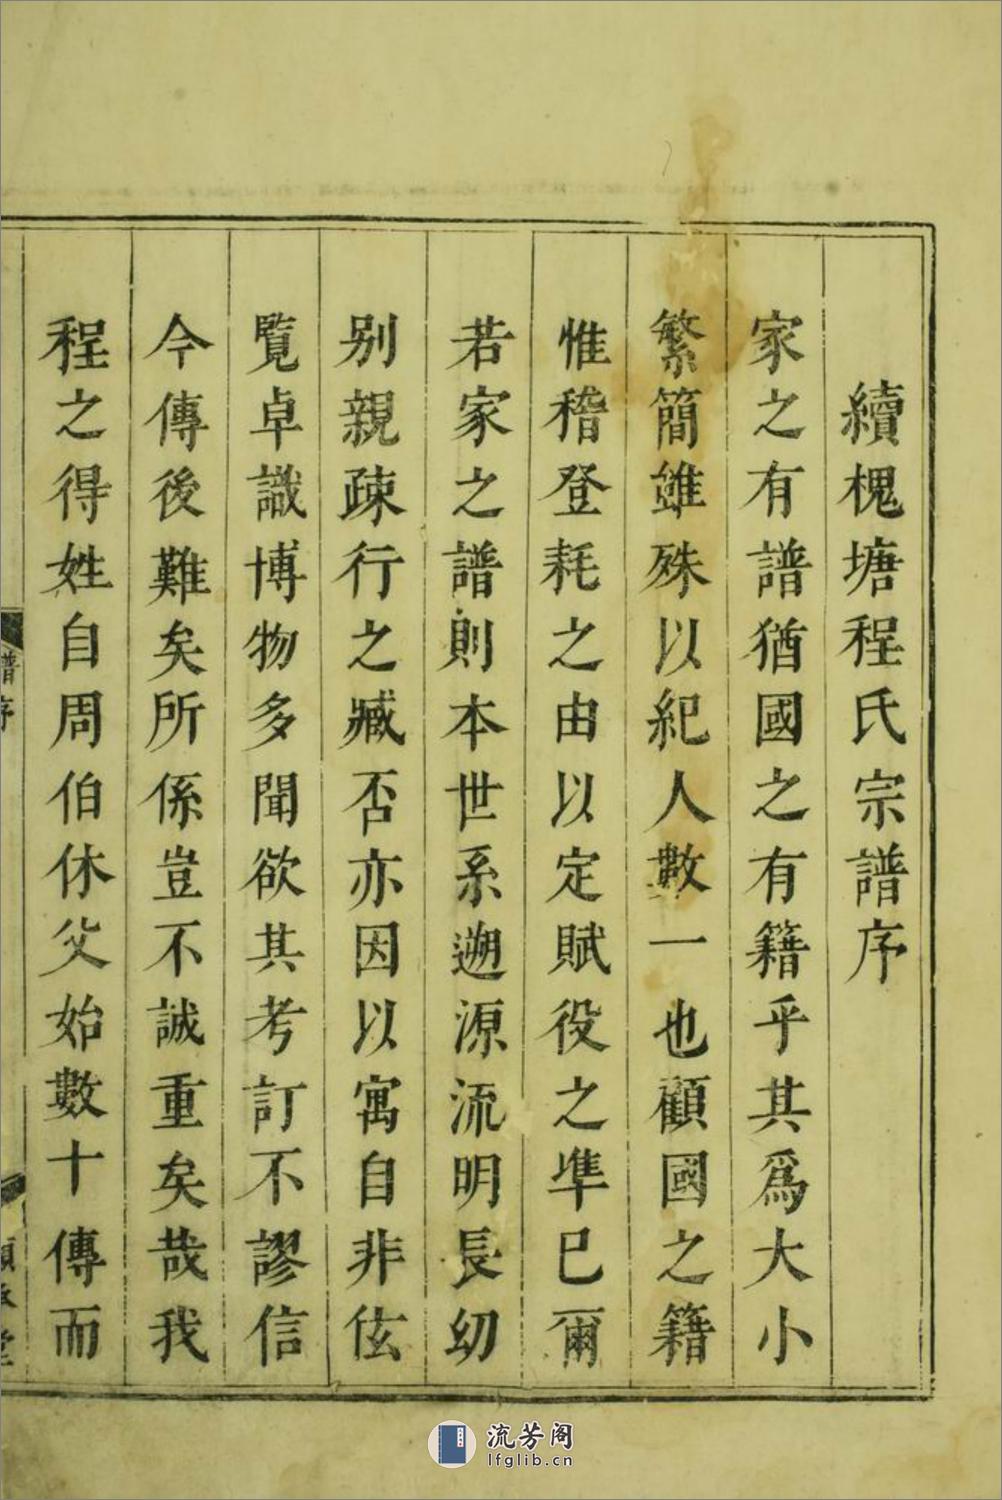 續槐塘程氏宗譜序
家之有譜猶國之有籍乎其爲大小
繁簡雖殊以紀人數一也顧國之籍
惟稽登耗之由以定賦役之準已爾
若家之譜則本世系遡源流明長幼
别親疎行之臧否亦因以寓自非伭
覽卓識博物多聞欲其考訂不謬信
今傳後難矣所係豈不誠重矣哉我
程之得姓自周伯休父始數十傳而
譜序
流芳阁
lfglib.cn